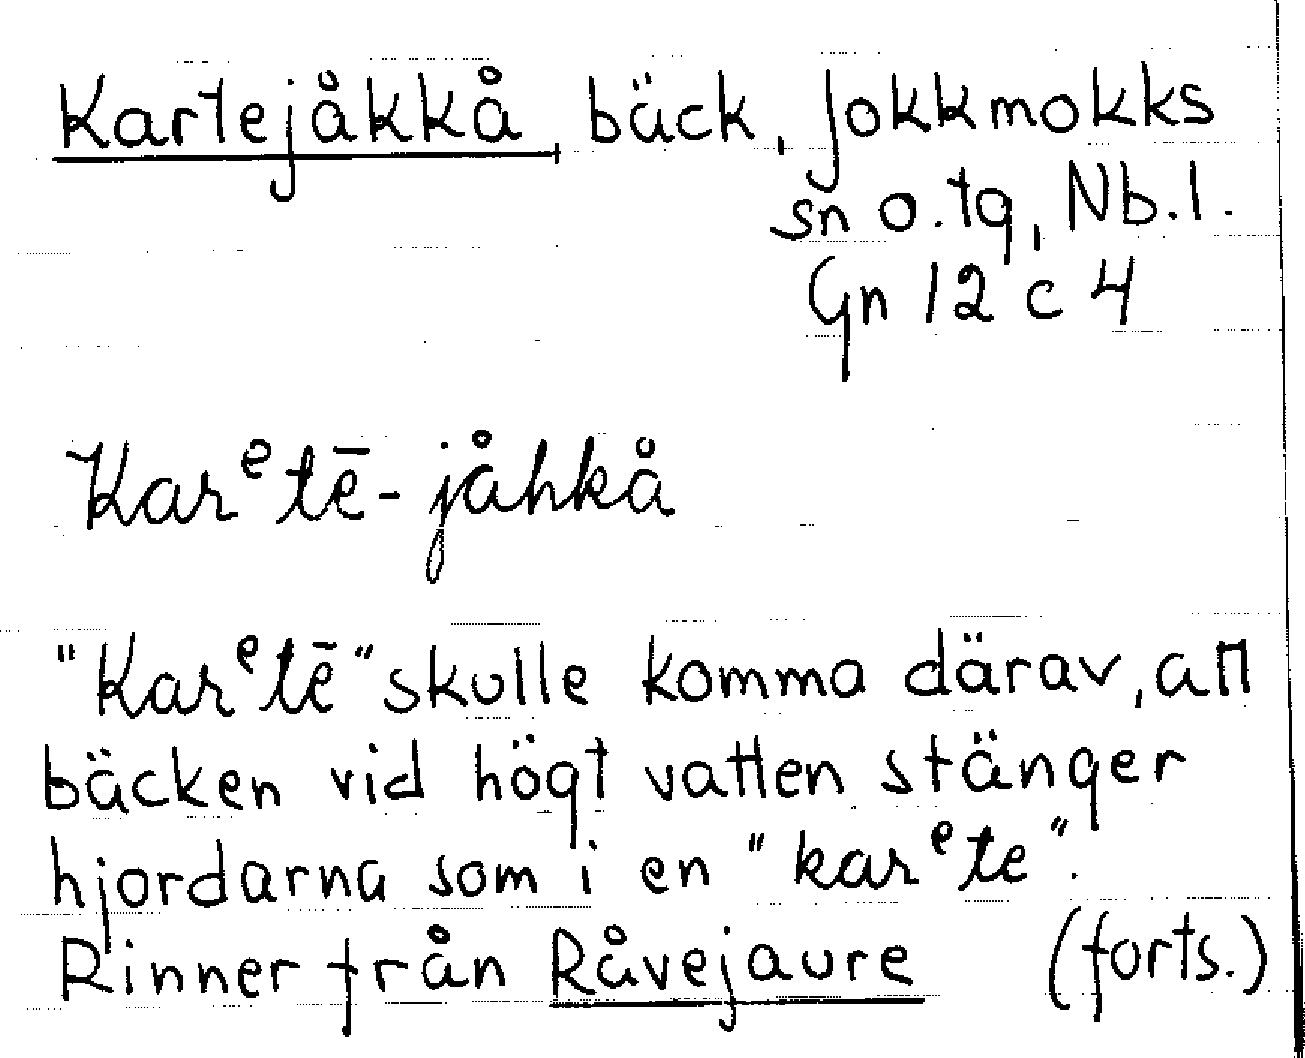 Kartejåkkå, bäck, Jokkmokks
sn o. tg, Nb. l.
Gn 12 c 4
Karᵉtē-jåhkå
"Karᵉtē" skulle komma därav, att
bäcken vid högt vatten stänger
hjordarna som i en "karᵉte".
Rinner från Råvejaure (forts.)